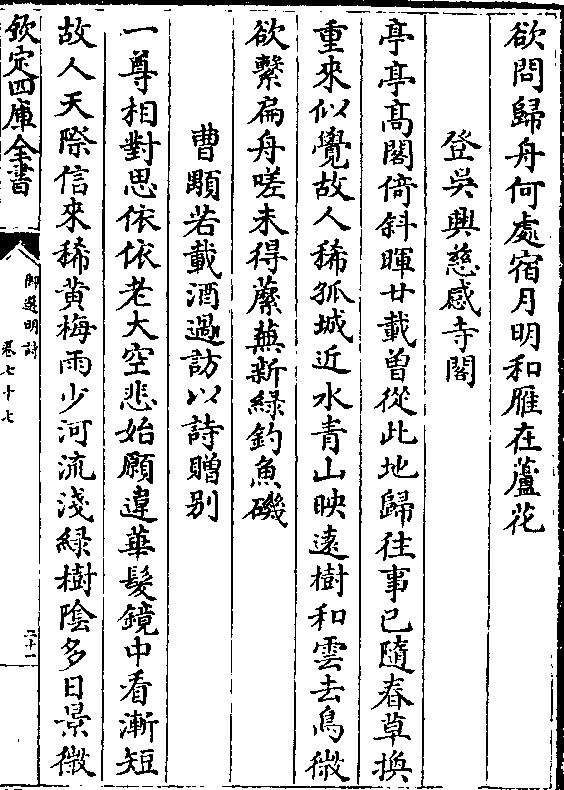 欲問歸舟何處宿月明和雁在蘆花
登吳興慈感寺閣
亭亭髙閣倚斜暉廿載曽從此地歸往事已隨春草換
重來似覺故人稀孤城近水青山映遠樹和雲去鳥微
欲繫扁舟嗟未得蘼蕪新綠釣魚磯
曹顒若載酒過訪以詩贈别
一尊相對思依依老大空悲始願違華髮鏡中看漸短
故人天際信來稀黄梅雨少河流淺緑樹陰多日景微
欽定四庫全書
御選明詩
卷七十七
三十一